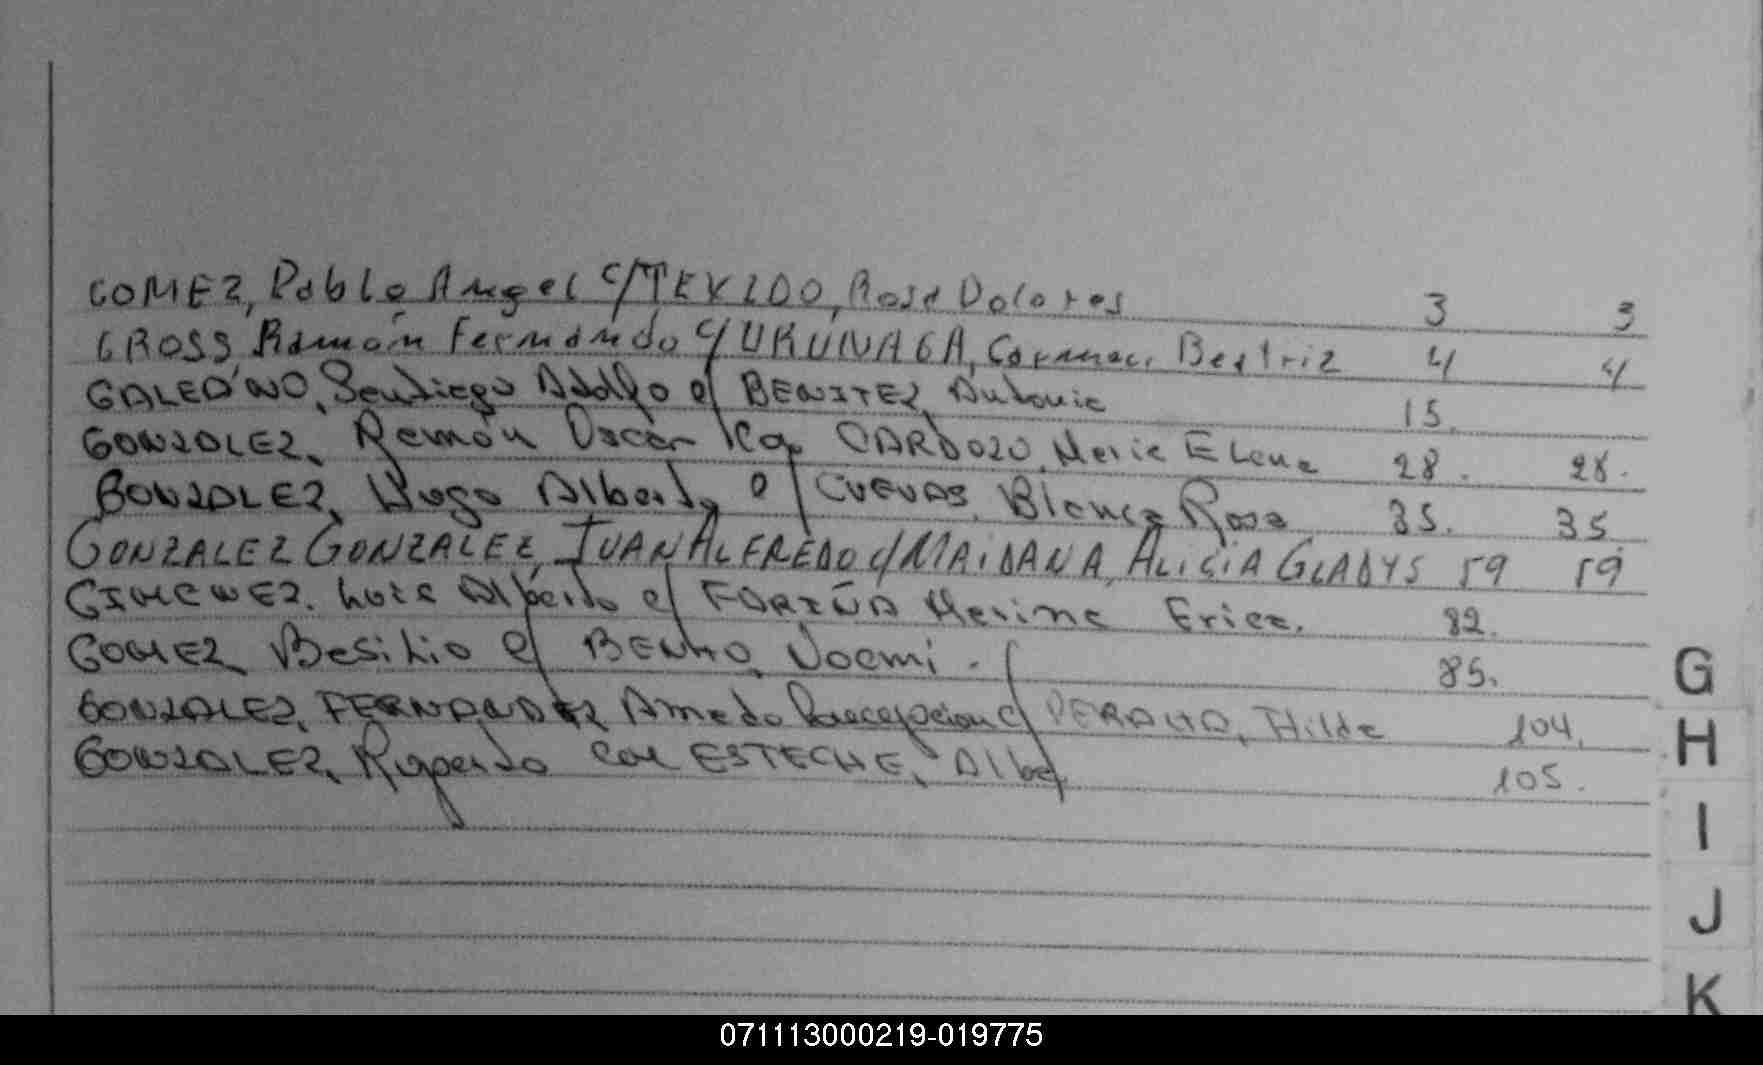 GOMEZ, Pablo Angel c/TEXIDO, Rosa Dolores 3 3
GROSS, Ramón Fernando c/URUNAGA, Carmen Beatriz 4 4
GALEANO, Santiago Adolfo c/ BENITEZ, Antonia 15.
GONZALEZ, Ramón Oscar CARDOZO, Maria Elena 28. 28.
GONZALEZ, Hugo Alberto c/ CUEVAS, Blanca Rosa 35. 35
GONZALEZ GONZALEZ, JUAN ALFREDO c/MAIDANA, ALICIA GLADYS 59 59
GIMENEZ. Luis Alberto c/ FARIÑA Marina Erica. 82.
GOMEZ, Basilio c/ Noemi. 85.
GONZALEZ, FERNANDEZ Amado c/ PERALTA, Hilda 104.
GONZALEZ, Rigoberto con ESTECHE, Alba 105.
G
H
I
J
K
071113000219-019775